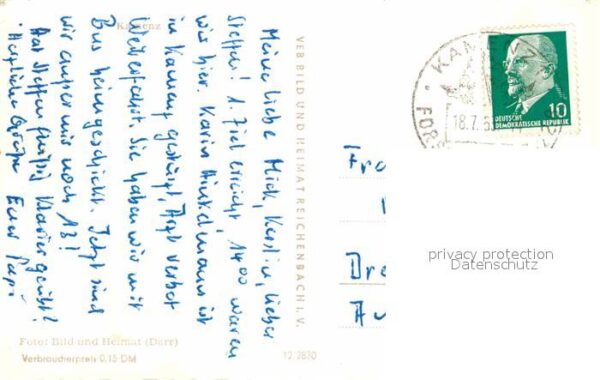 Kamenz
Meine liebe Mick, Kerstin, lieber
Steffen! 1. Ziel erreicht. 14⁰⁰ waren
wir hier. Karin Hinkelmann ist
in Kamenz gestürzt, Arzt verbot
Weiterfahrt. Sie haben wir mit
Bus heimgeschickt. Jetzt sind
wir außer mir noch 13!
Hat Steffen fleißig Klavier geübt?
Herzliche Grüße Euer Papi
Foto: Bild und Heimat (Darr)
Verbraucherpreis 0,15 DM
VEB BILD UND HEIMAT REICHENBACH I. V.
12/2830
KAM
FOR
18.7.6
DEUTSCHE
DEMOKRATISCHE REPUBLIK
10
Fr
Dre
Au
privacy protection
Datenschutz